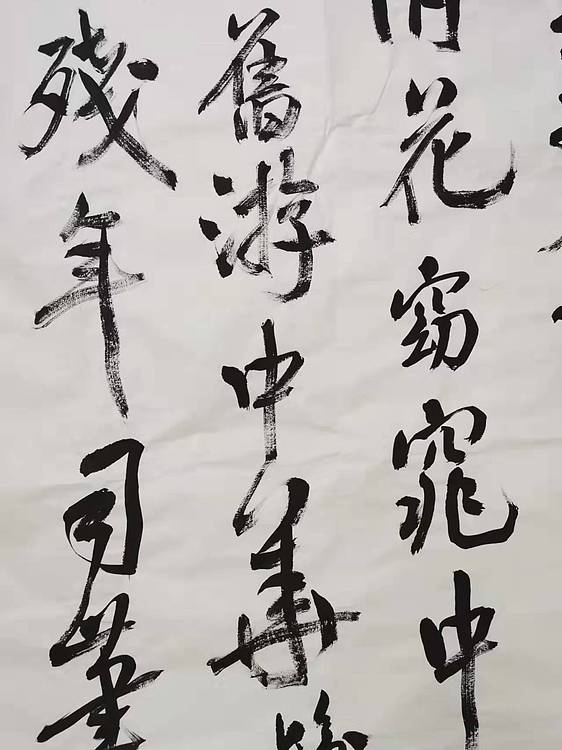 花窈窕中
舊游中華
殘年司